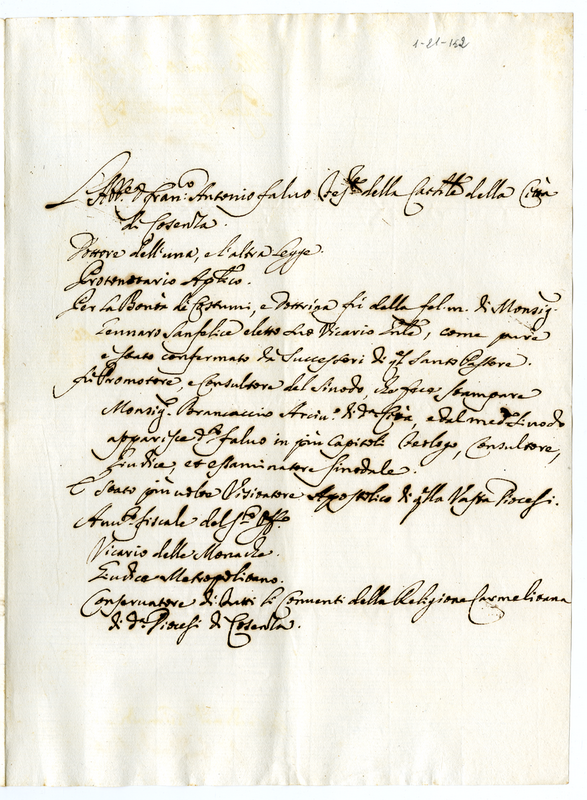 1-21-152
L'Abb.e D. Fran.co Antonio Falvo Tes.re della Catt.le della Città
di Cosenza.
Dottore dell'una, e l'altra Legge.
Protonotario Ap.lico.
Per la Bontà de Costumi, e Dottrina fù della fel. m. di Monsig.r
Gennaro Sanfelice eletto suo Vicario Gn̄le, come pure
e stato confermato da Successori di q.l Santo Pastore.
Fù Promotore, e Consultore del Sinodo, che fece stampare
Monsig.r Brancaccio Arciu.o di d.a Città, e dal med.o Sinodo
apparisce d.o Falvo in più Capitoli Teologo, Consultore,
Giudice, et essaminatore sinodale.
È stato più volte Visitatore Apostolico di q.lla Vasta Diocesi.
Auu.to fiscale del S.to Off.o
Vicario delle Monache.
Giudice Metropolitano.
Conservatore di tutti li Conventi della Religione Carmelitana
di d.a Diocesi di Cosenza.